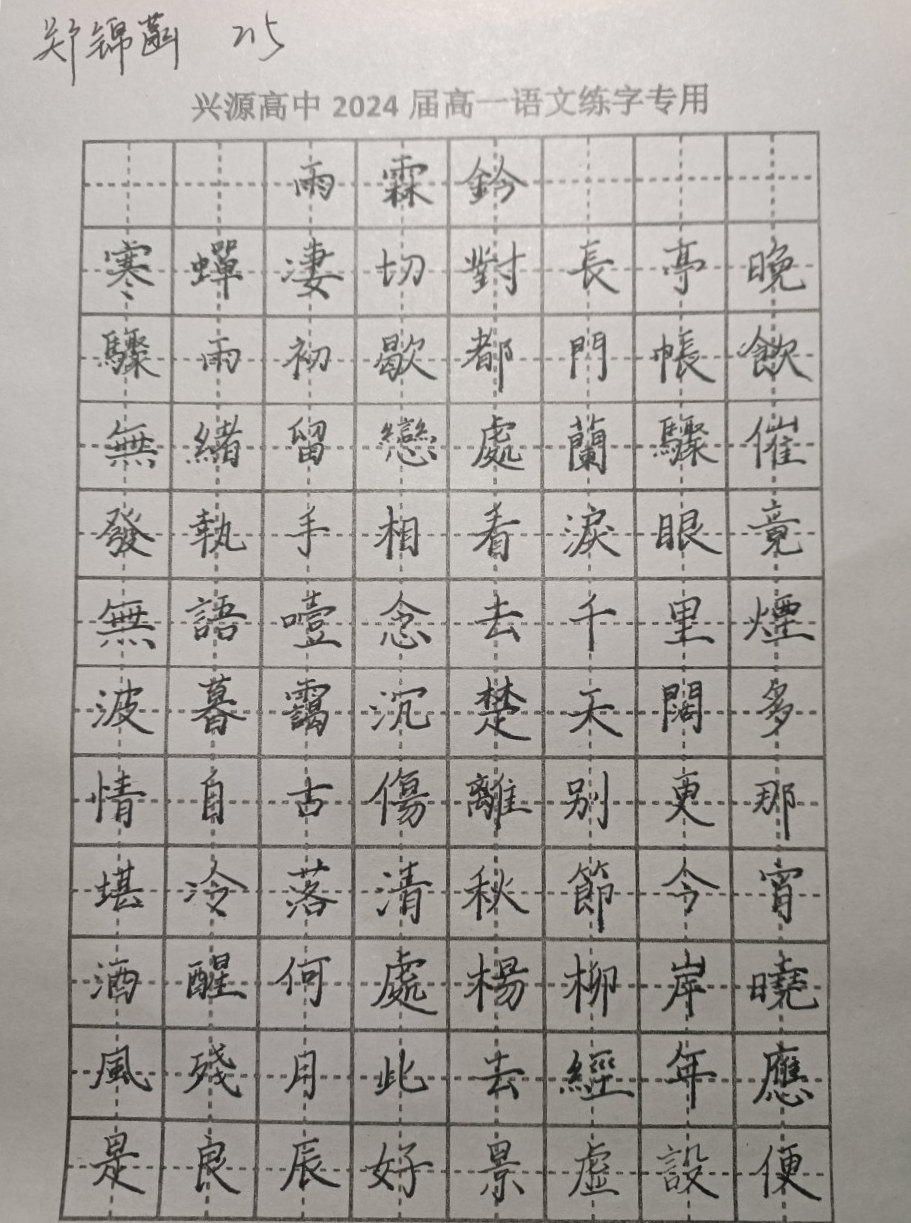 郑锦菡 215
兴源高中 2024 届高一语文练字专用
雨霖鈴
寒蟬淒切對長亭晚
驟雨初歇都門帳飲
無緒留戀處蘭驟催
發執手相看淚眼竟
無語噎念去千里煙
波暮靄沉楚天闊多
情自古傷離別更那
堪冷落清秋節今宵
酒醒何處楊柳岸曉
風殘月此去經年應
是良辰好景虛設便